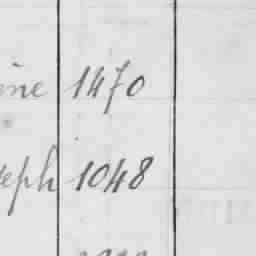 ine 1470
seph 1048